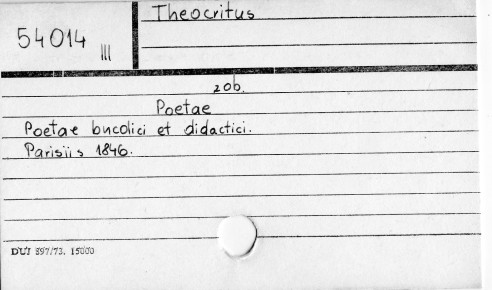 Theocritus
54014 III
zob.
Poetae
Poetae bucolici et didactici.
Parisiis 1846.
DUJ 897/73. 15000